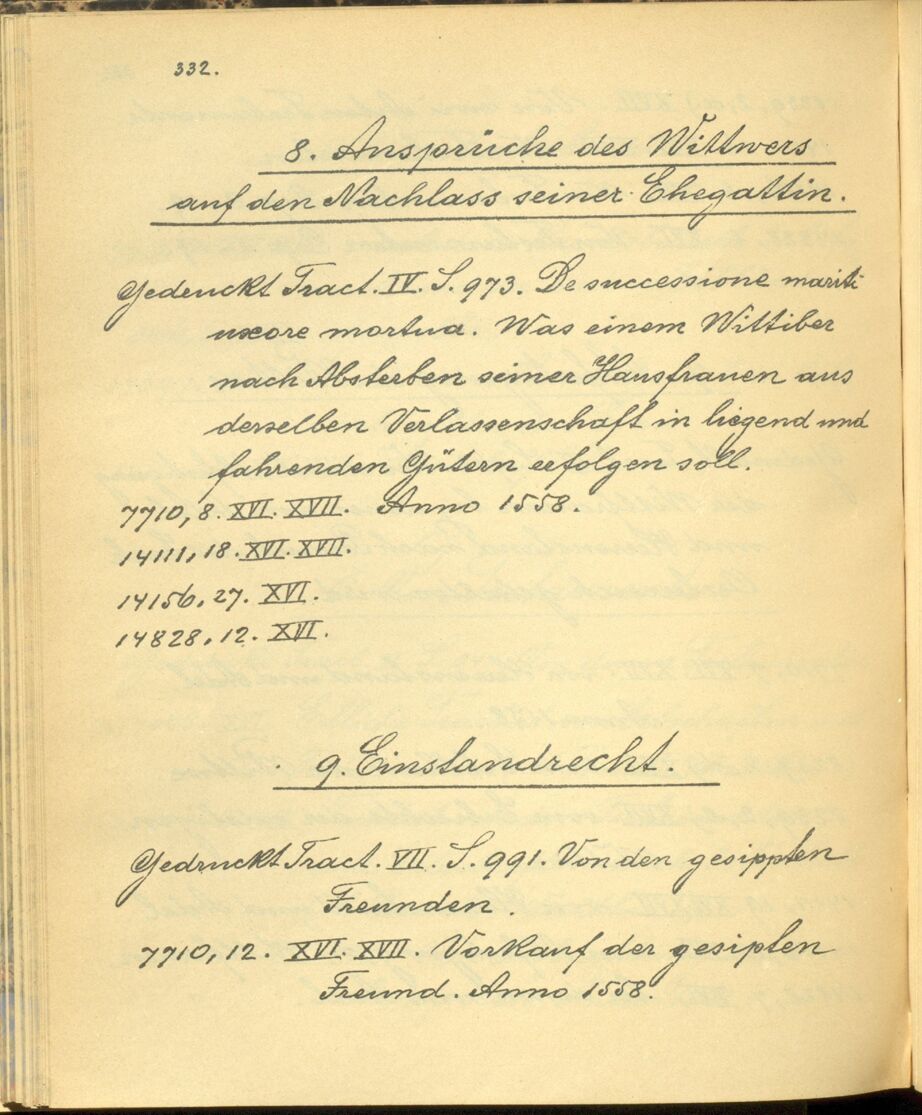 332.
8. Ansprüche des Wittwers
auf den Nachlass seiner Ehegattin.
Gedruckt Tract. IV. S. 973. De successione mariti
uxore mortua. Was einem Wittiber
nach Absterben seiner Hausfrauen aus
derselben Verlassenschaft in liegend und
fahrenden Gütern erfolgen soll.
7710, 8. XVI. XVII. Anno 1558.
14111, 18. XVI. XVII.
14156, 27. XVI.
14828, 12. XVI.
9. Einstandrecht.
Gedruckt Tract. VII. S. 991. Von den gesippten
Freunden.
7710, 12. XVI. XVII. Vorkauf der gesipten
Freund. Anno 1558.